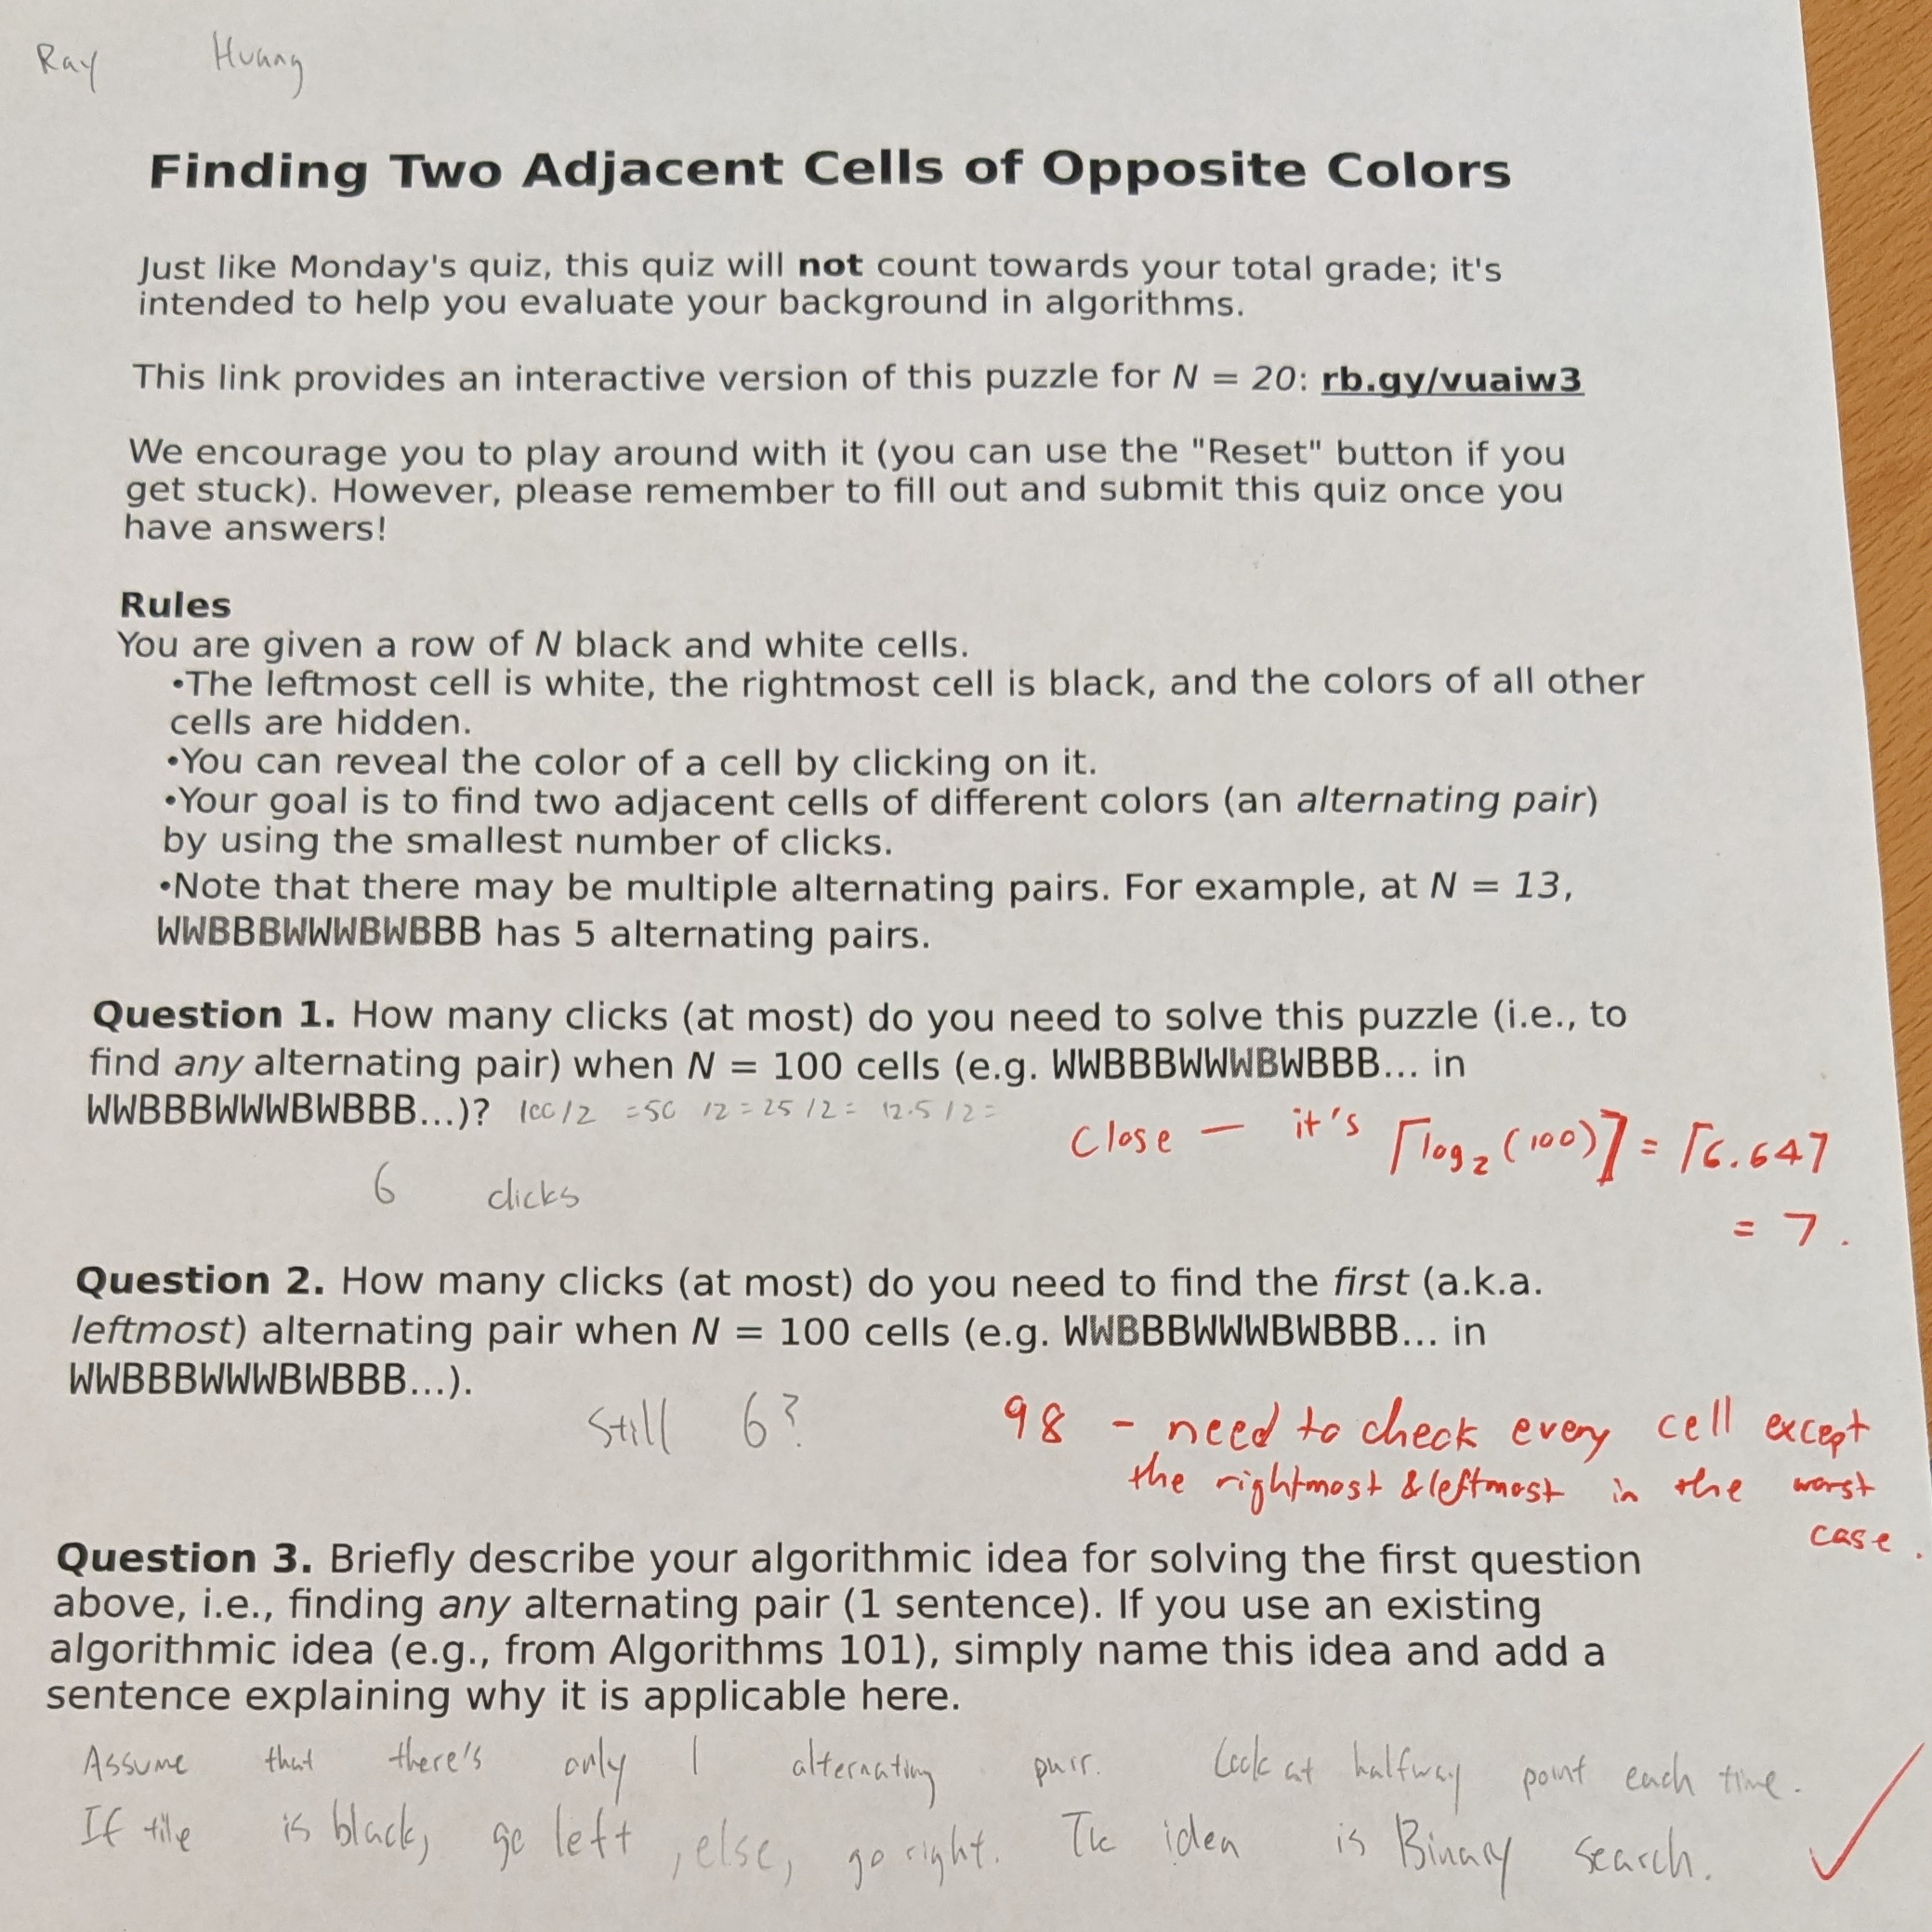 Ray Huang
Finding Two Adjacent Cells of Opposite Colors
Just like Monday's quiz, this quiz will not count towards your total grade; it's
intended to help you evaluate your background in algorithms.
This link provides an interactive version of this puzzle for N = 20: rb.gy/vuaiw3
We encourage you to play around with it (you can use the "Reset" button if you
get stuck). However, please remember to fill out and submit this quiz once you
have answers!
Rules
You are given a row of N black and white cells.
•The leftmost cell is white, the rightmost cell is black, and the colors of all other
cells are hidden.
•You can reveal the color of a cell by clicking on it.
•Your goal is to find two adjacent cells of different colors (an alternating pair)
by using the smallest number of clicks.
•Note that there may be multiple alternating pairs. For example, at N = 13,
WWBBBWWWBWBBB has 5 alternating pairs.
Question 1. How many clicks (at most) do you need to solve this puzzle (i.e., to
find any alternating pair) when N = 100 cells (e.g. WWBBBWWWBWBBB... in
WWBBBWWWBWBBB...)? 100/2 =50 /2=25/2= 12.5/2=
Close — it's ⌈log₂(100)⌉ = ⌈6.64⌉
6 clicks
= 7.
Question 2. How many clicks (at most) do you need to find the first (a.k.a.
leftmost) alternating pair when N = 100 cells (e.g. WWBBBWWWBWBBB... in
WWBBBWWWBWBBB...).
Still 6?
98 - need to check every cell except
the rightmost & leftmost in the worst
case.
Question 3. Briefly describe your algorithmic idea for solving the first question
above, i.e., finding any alternating pair (1 sentence). If you use an existing
algorithmic idea (e.g., from Algorithms 101), simply name this idea and add a
sentence explaining why it is applicable here.
Assume that there's only 1 alternating pair. Look at halfway point each time.
If tile is black, go left, else, go right. The idea is Binary search.